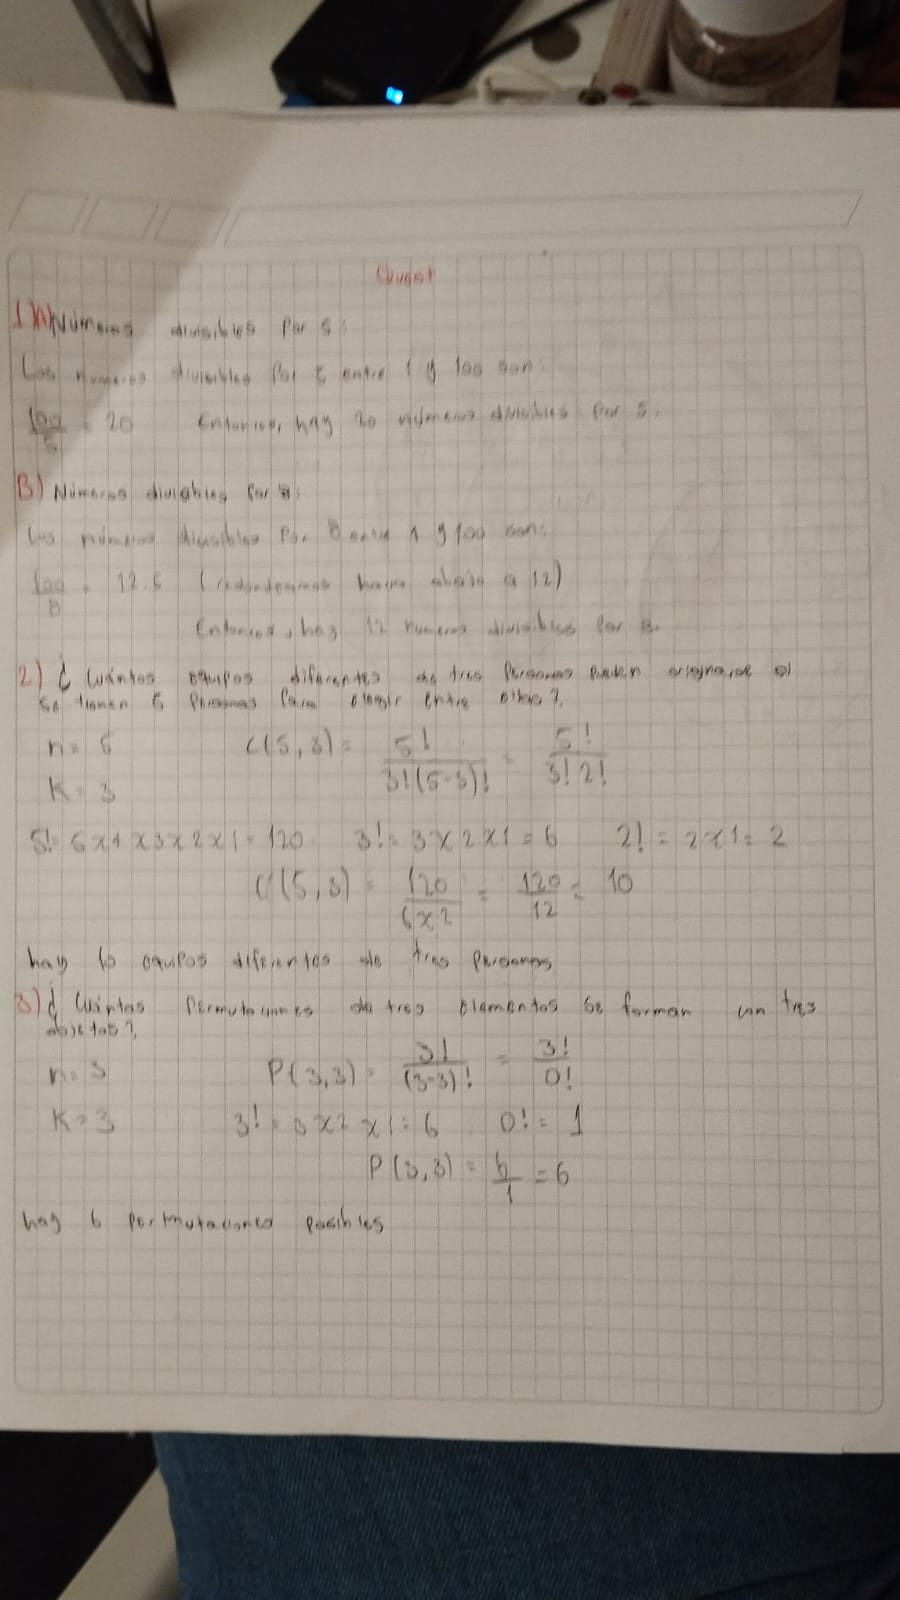 Quest
1)A) Números divisibles por 5:
Los numeros divisibles por 5 entre 1 y 100 son:
100/5 = 20 Entonces, hay 20 números divisibles por 5.
B) Números divisibles por 8:
Los números divisibles por 8 entre 1 y 100 son:
100/8 = 12.5 (redondeamos hacia abajo a 12)
Entonces, hay 12 numeros divisibles por 8.
2) ¿Cuántos equipos diferentes de tres personas pueden originarse si
se tienen 5 personas para elegir entre ellas?
n = 5 C(5,3) = 5!/3!(5-3)! = 5!/3!2!
K = 3
5! = 5x4x3x2x1 = 120 3! = 3x2x1 = 6 2! = 2x1 = 2
C(5,3) = 120/6x2 = 120/12 = 10
hay 10 equipos diferentes de tres personas
3) ¿Cuántas permutaciones de tres elementos se forman con tres
objetos?
n = 3 P(3,3) = 3!/(3-3)! = 3!/0!
K = 3 3! = 3x2x1 = 6 0! = 1
P(3,3) = 6/1 = 6
hay 6 permutaciones posibles